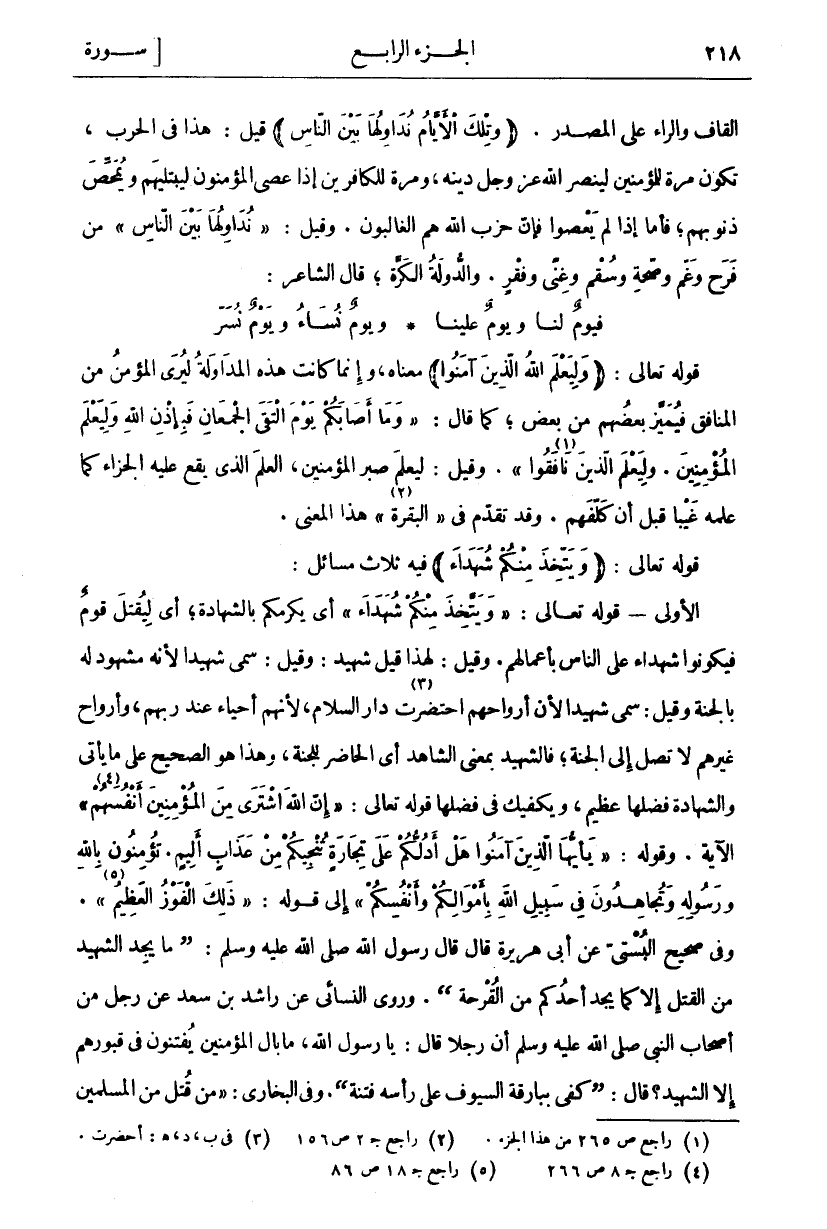 ٢١٨ الجـــزء الرابــع [ ســـورة
القاف والراء على المصــدر . ﴿ وتِلْكَ الْأَيَّامُ نُدَاوِلُهَا بَيْنَ النَّاسِ ﴾ قيل : هذا فى الحرب ،
تكون مرة للؤمنين لينصر الله عز وجل دينه ، ومرة للكافرين إذا عصى المؤمنون ليبتليَهم ويُمَحِّصَ
ذنوبهم ؛ فأما إذا لم يَعْصوا فإنّ حزب الله هم الغالبون . وقيل : « نُدَاوِلُهَا بَيْنَ النَّاسِ » من
فَرَح وغَم وصِّحةٍ وسُقْم وغِنًى وفقرٍ . والدُّولَةُ الكَرَّة ؛ قال الشاعر :
فيومٌ لنــا ويومٌ علينــا * ويومٌ نُسَــاءُ ويَوْمٌ نُسَرّ
قوله تعالى : ﴿ وَلِيَعْلَمَ اللهُ الَّذِينَ آمَنُوا ﴾ معناه ، وإنما كانت هذه المداوَلةُ لُيرَى المؤمنُ من
المنافق فيُمَيَّز بعضُهم من بعض ؛ كما قال : « وَمَا أَصَابَكُمْ يَوْمَ الْتَقَى الْجَمْعَانِ فَبِإِذْنِ اللهِ وَلِيَعْلَمَ
المُؤْمِنِينَ . ولِيَعْلَمَ الَّذِينَ نَافَقُوا (١) » . وقيل : ليعلمَ صبر المؤمنين ، العلمَ الذى يقع عليه الجزاء كما
علمه غَيْبا قبل أن كَلّفَهم . وقد تقدّم فى « البقرة (٢) » هذا المعنى .
قوله تعالى : ﴿ وَيَتَّخِذَ مِنْكُمْ شُهَدَاءَ ﴾ فيه ثلاث مسائل :
الأولى — قوله تعــالى : « وَيَتَّخِذَ مِنْكُمْ شُهَدَاءَ » أى يكرمكم بالشهادة ؛ أى لِيُقتلَ قومٌ
فيكونوا شهداء على الناس بأعمالهم . وقيل : لهذا قيل شهيد : وقيل : سمى شهيدا لأنه مشهود له
بالجنة وقيل : سمى شهيدا لأن أرواحهم احتضرت (٣) دار السلام ، لأنهم أحياء عند ربهم ، وأرواح
غيرهم لا تصل إلى الجنة ؛ فالشهيد بمعنى الشاهد أى الحاضر للجنة ، وهذا هو الصحيح على ما يأتى
والشهادة فضلها عظيم ، ويكفيك فى فضلها قوله تعالى : « إنّ اللهَ اشْتَرَى مِنَ المُؤْمِنِينَ أَنْفُسَهُمْ (٤) »
الآية . وقوله : « يَأَيُّهَا الَّذِينَ آمَنُوا هَلْ أَدُلُّكُمْ عَلَى تِجَارَةٍ تُنْجِيكُمْ مِنْ عَذَابٍ أَلِيمٍ . تُؤْمِنُونَ بِاللهِ
ورَسُولِهِ وَتُجَاهِــدُونَ فِى سَبِيلِ اللهِ بِأَمْوَالِكُمْ وأَنْفُسِكُمْ » إلى قــوله : « ذَلِكَ الْفَوْزُ الْعَظِيمُ (٥) » .
وفى صحيح البُسْتِى عن أبى هريرة قال قال رسول الله صلى الله عليه وسلم : ” ما يجد الشهيد
من القتل إلا كما يجد أحدُكم من القُرْحة “ . وروى النسائى عن راشد بن سعد عن رجل من
أصحاب النبى صلى الله عليه وسلم أن رجلا قال : يا رسول الله ، ما بال المؤمنين يُفتنون فى قبورهم
إلا الشهيد؟ قال : ”كفى ببارقة السيوف على رأسه فتنة“ . وفى البخارى : «من قُتل من المسلمين
(١) راجع ص ٢٦٥ من هذا الجزء . (٢) راجع جـ ٢ ص ١٥٦ (٣) فى ب ، د ، هـ : أحضرت .
(٤) راجع جـ ٨ ص ٢٦٦ (٥) راجع جـ ١٨ ص ٨٦